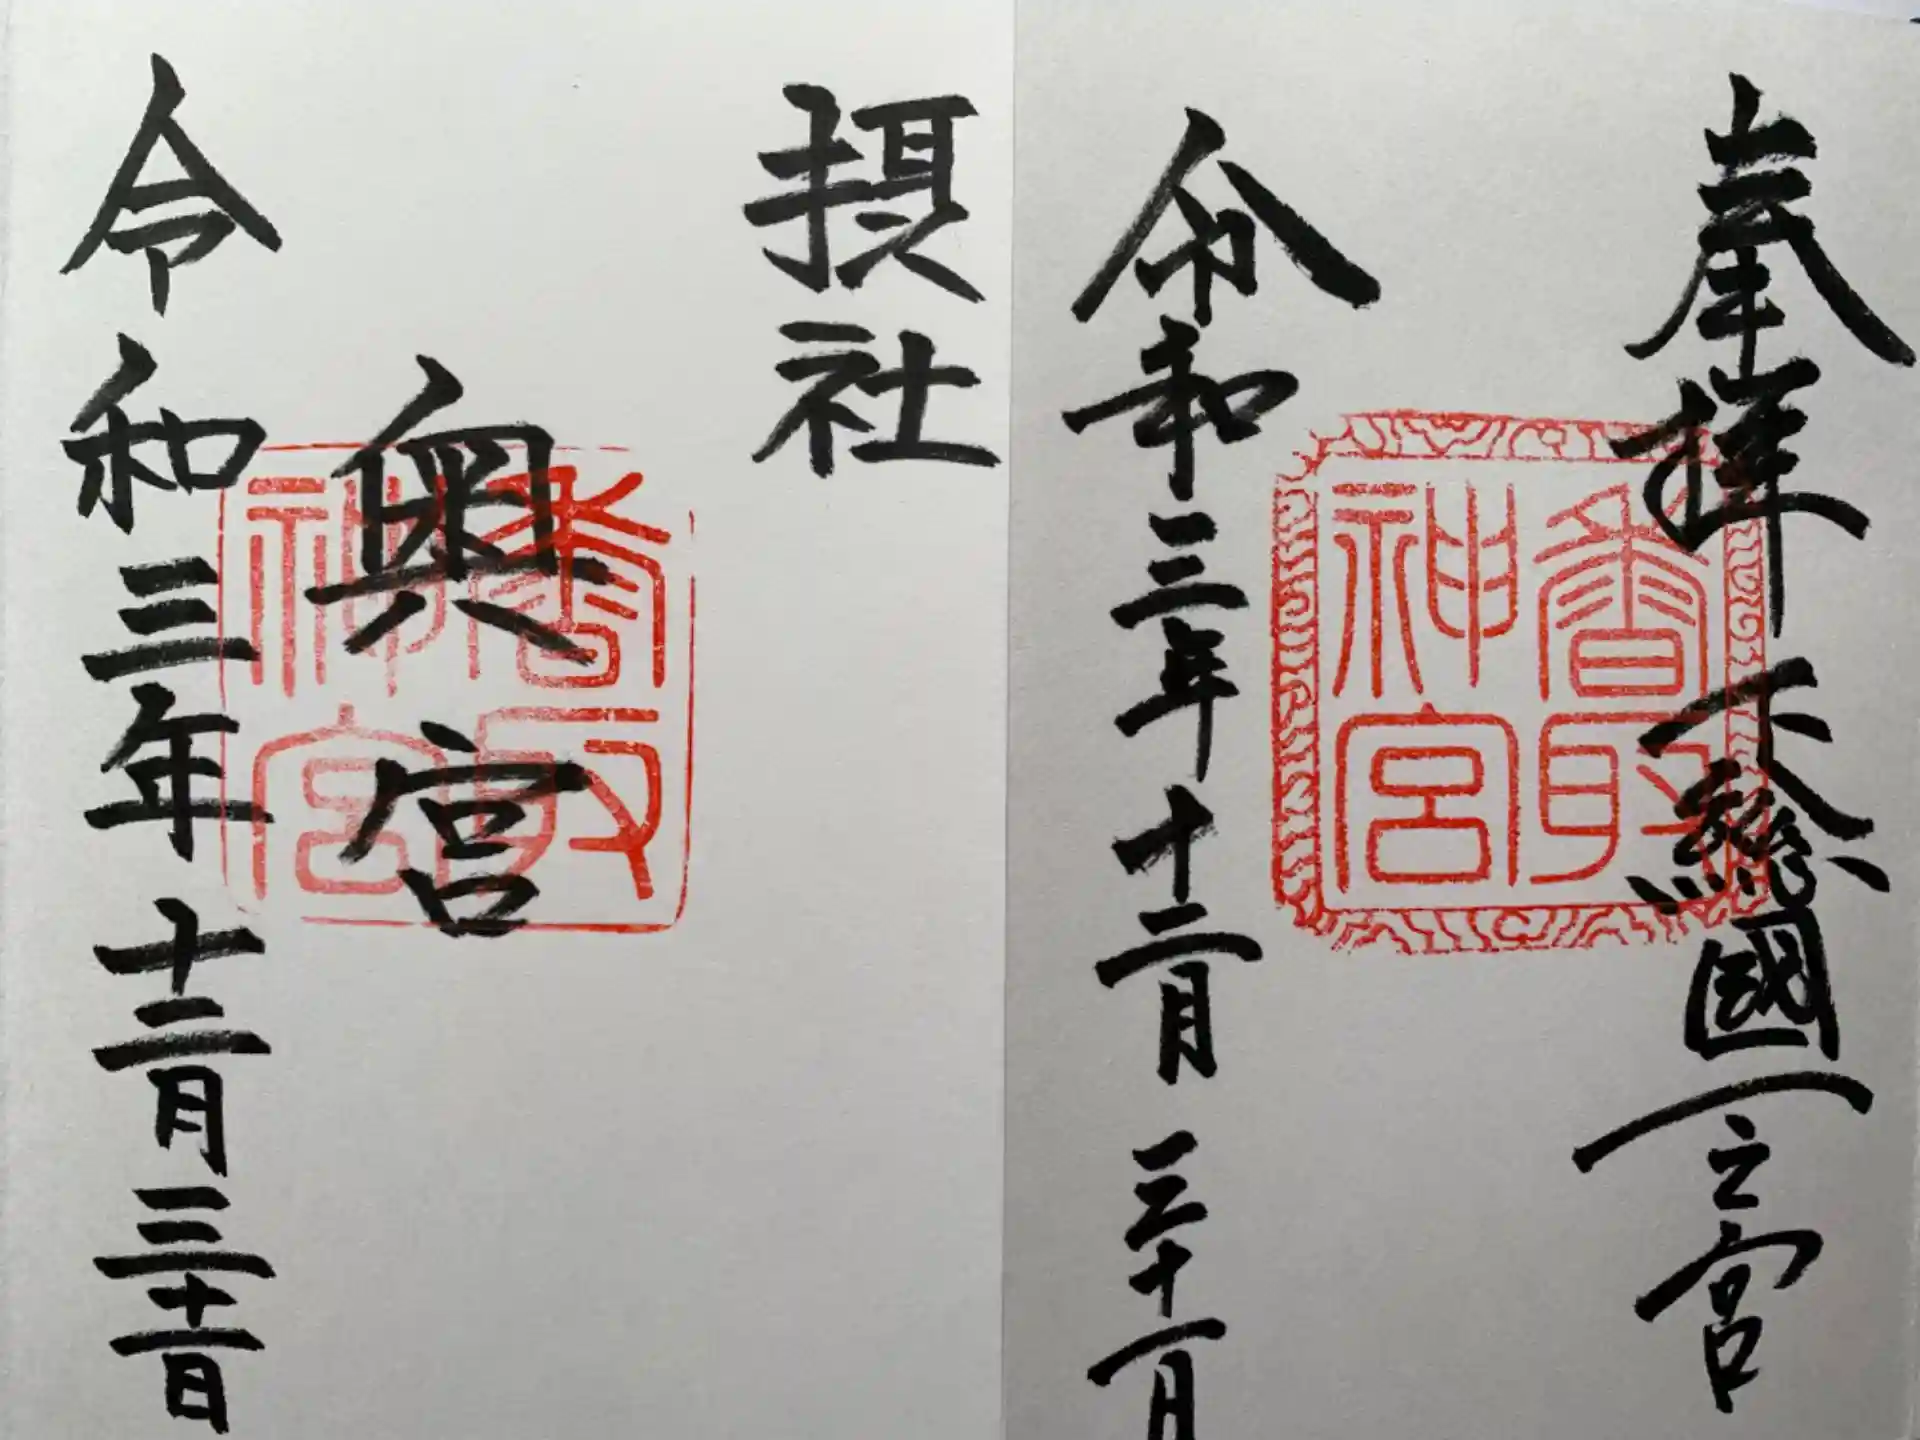 奉拝 下總國一之宮
香取神宮
令和三年十二月三十一日
摂社
奥宮
香取神宮
令和三年十二月三十一日